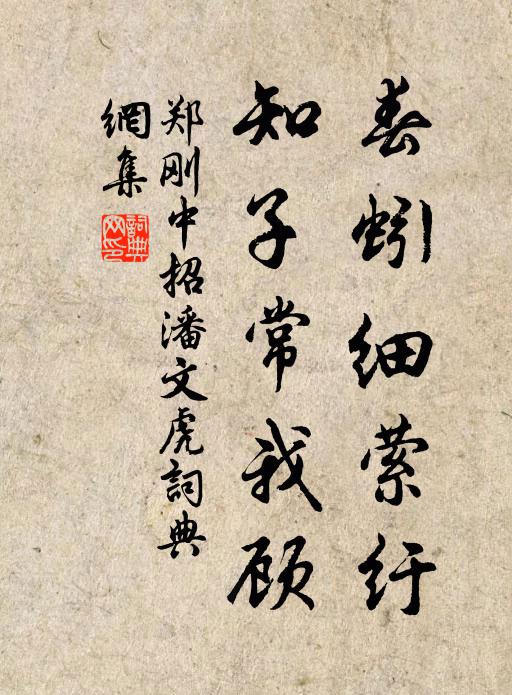 春蚓细萦纡
知子常我顾
郑刚中招潘文虎詞典
網集
詞典网印